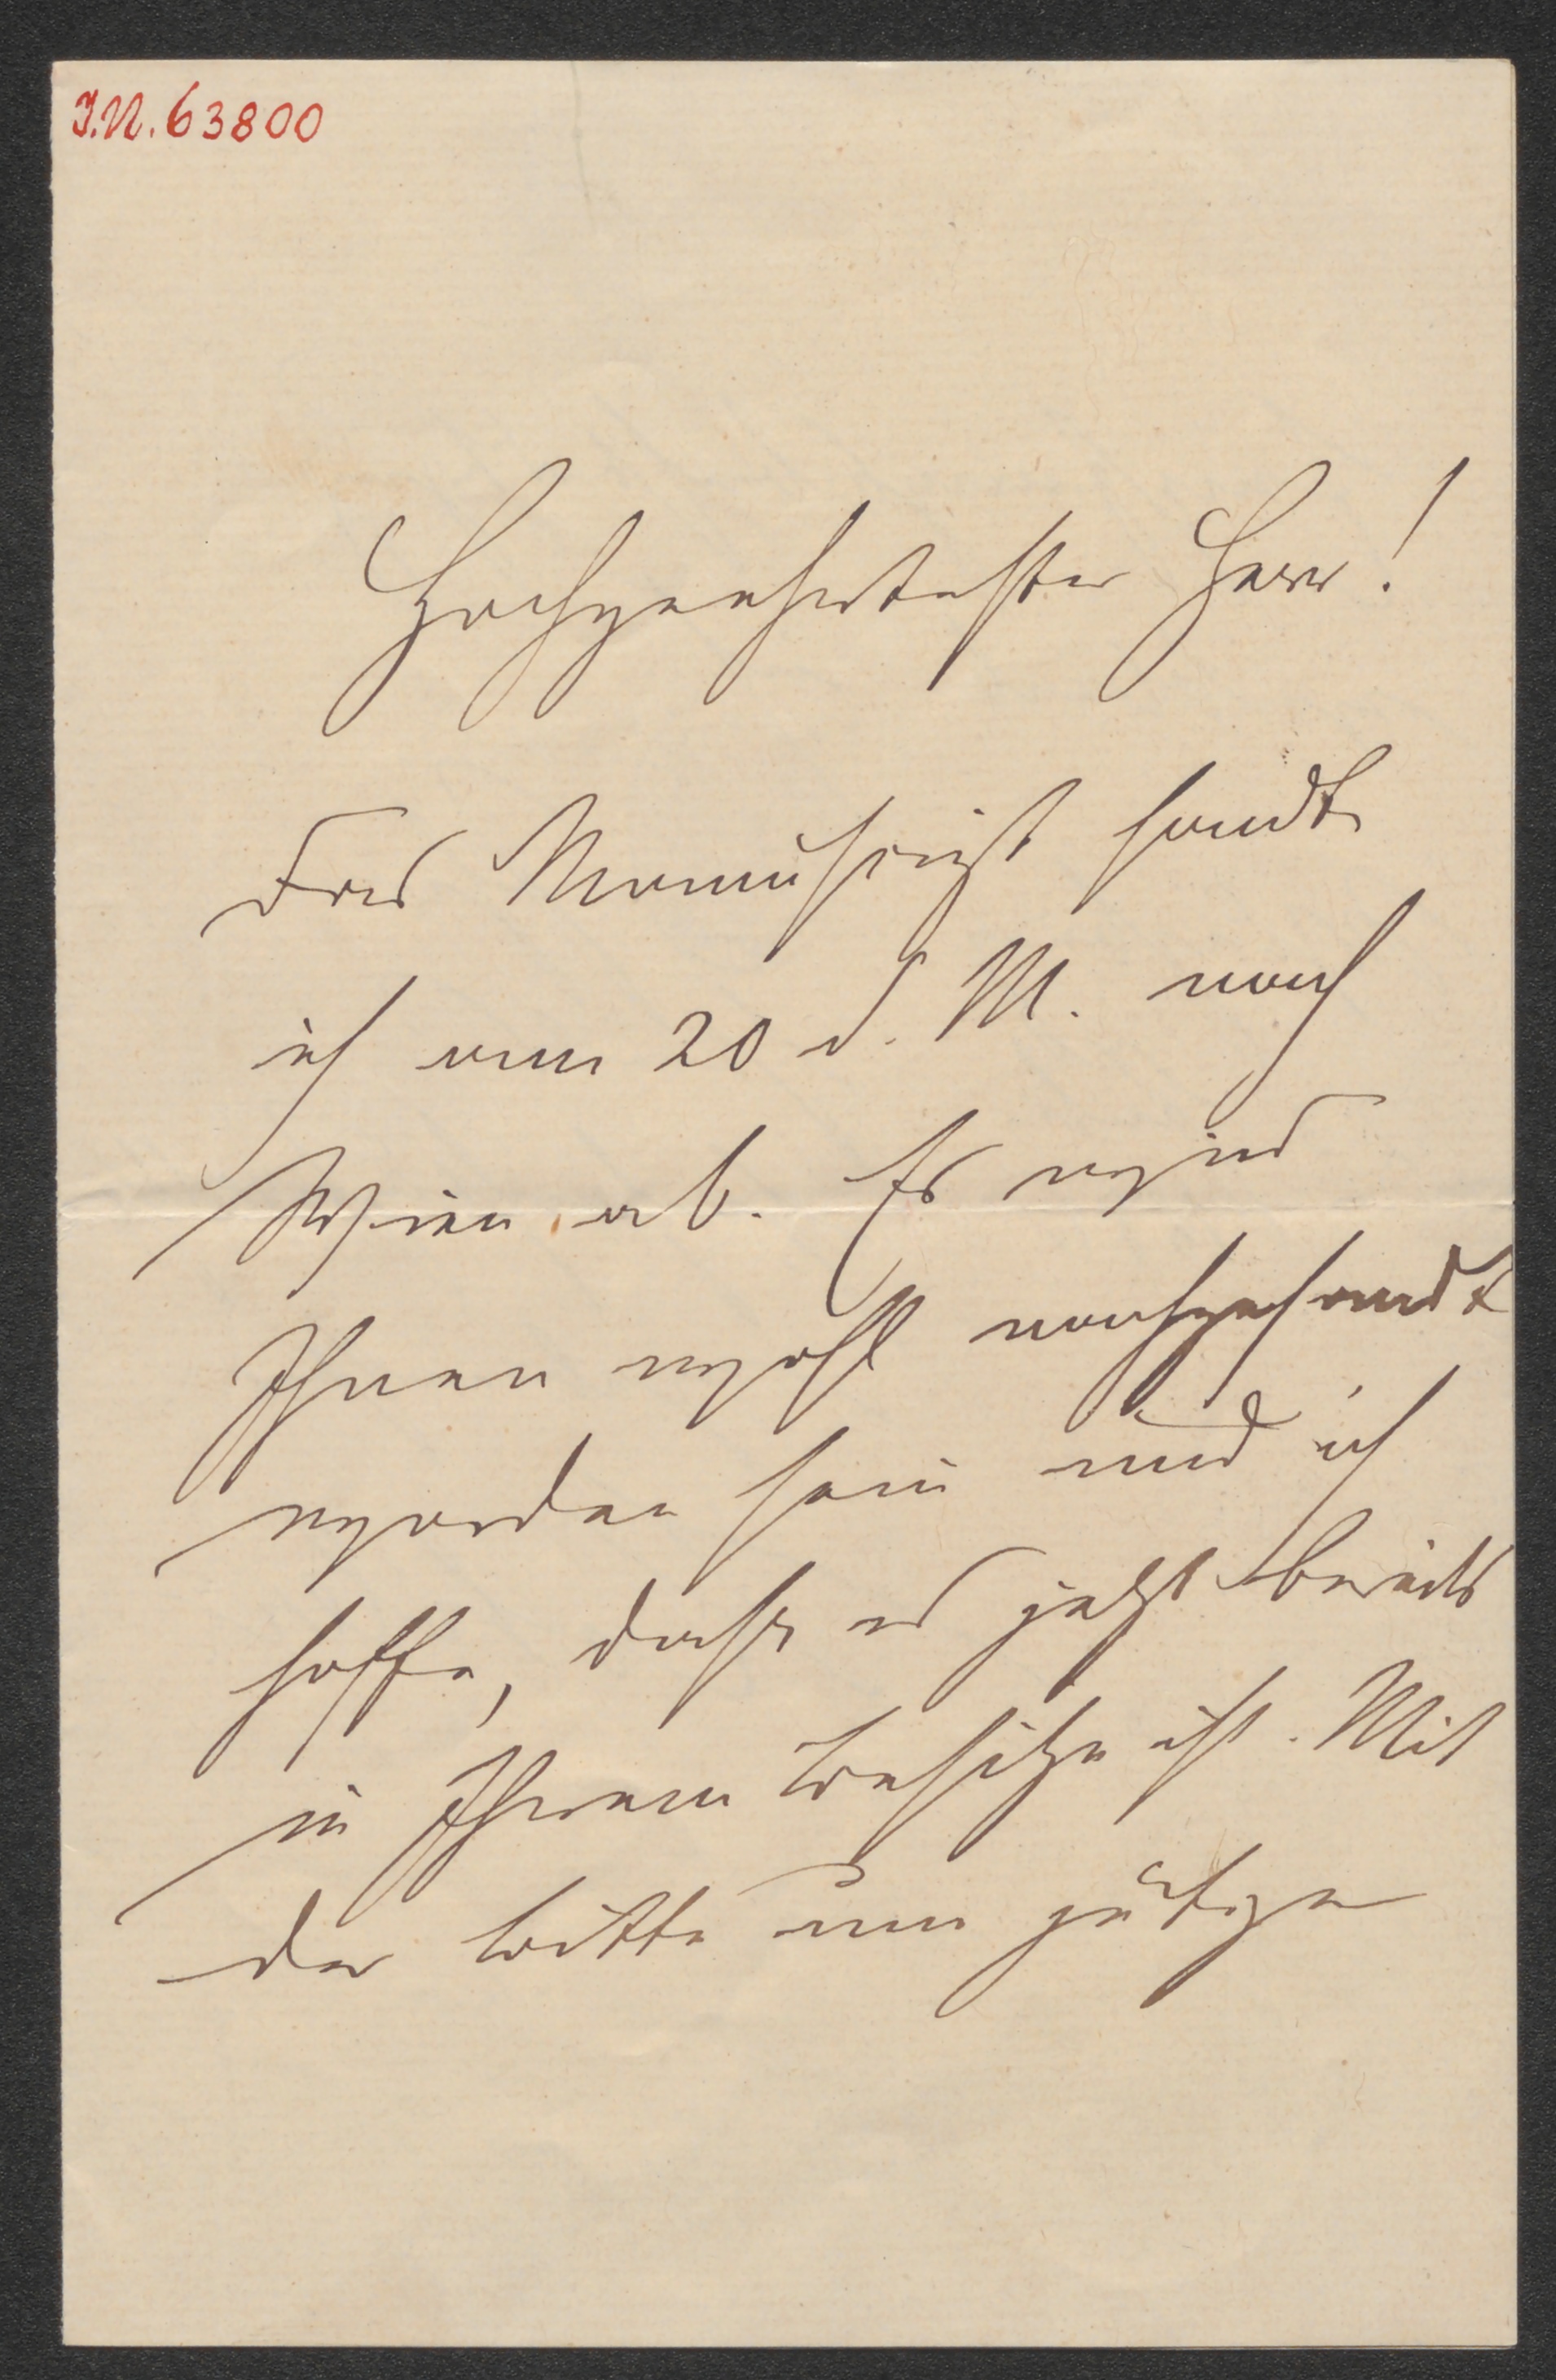 I.N. 63800
Hochgeehrtester Herr!
Das Manuskript sandte
ich am 20 d. M. nach
Wien ab. Es wird
Ihnen wohl nachgesandt
worden sein und ich
hoffe, dass es jetzt bereits
in Ihrem Besitze ist. Mit
der Bitte um gütige